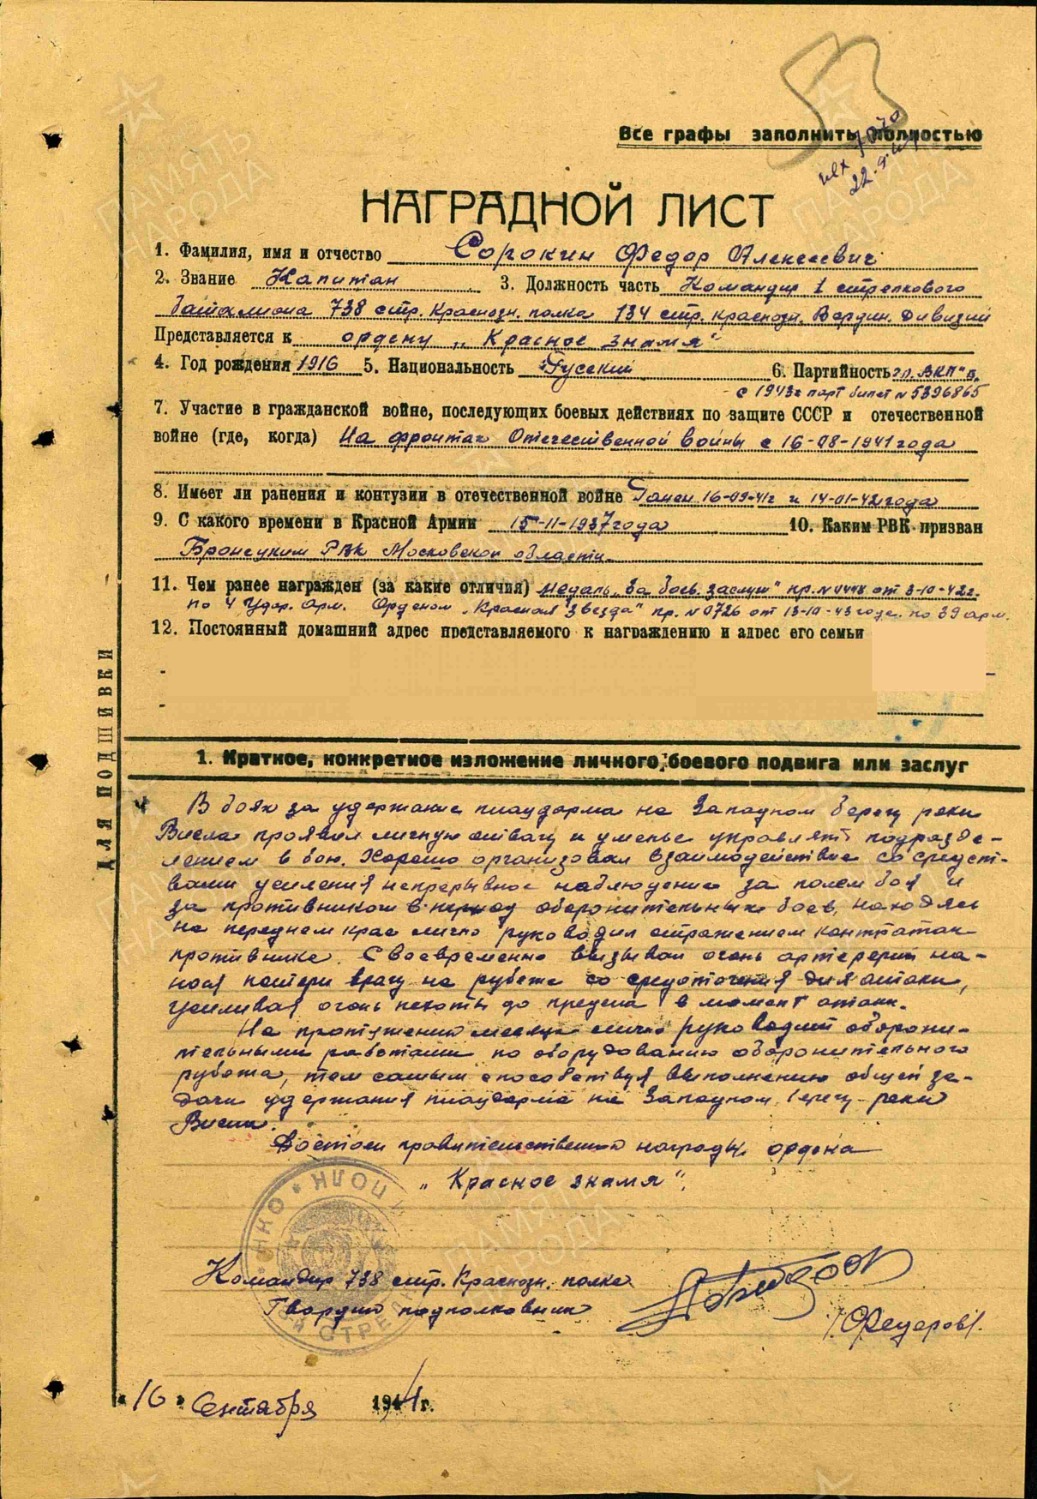 Все графы заполнить полностью
вх 7070
22.9.44
НАГРАДНОЙ ЛИСТ
1. Фамилия, имя и отчество Сорокин Федор Алексеевич
2. Звание Капитан 3. Должность часть Командир 1 стрелкового
батальона 738 стр. Краснозн. полка 134 стр. краснозн. Вердин. дивизии
Представляется к ордену „Красное знамя"
4. Год рождения 1916 5. Национальность Русский 6. Партийность ВКП"б"
с 1943г парт билет № 5396865
7. Участие в гражданской войне, последующих боевых действиях по защите СССР и отечественной
войне (где, когда) На фронтах Отечественной войны с 16-08-1941 года
8. Имеет ли ранения и контузии в отечественной войне Ранен 16-09-41г и 14-01-42 года
9. С какого времени в Красной Армии 15-11-1937 года 10. Каким РВК призван
РВК Московской области
11. Чем ранее награжден (за какие отличия) медаль „За боев. заслуги" пр. № от 3-10-42г.
по 4 Удар. Арм. Орденом „Красная Звезда" пр. № 0726 от 13-10-43 года. по 39 арм.
12. Постоянный домашний адрес представляемого к награждению и адрес его семьи
ДЛЯ ПОДШИВКИ
1. Краткое, конкретное изложение личного боевого подвига или заслуг
В боях за удержание плацдарма на Западном берегу реки
Висла проявил личную отвагу и уменье управлять подразде-
лением в бою. Хорошо организовал взаимодействие со средст-
вами усиления непрерывное наблюдение за полем боя и
за противником в период оборонительных боев, находясь
на переднем крае лично руководил отражением контратак
противника. Своевременно вызывал огонь артелерии на-
нося потери врагу на рубеже сосредоточения для атаки,
усиливая огонь пехоты до предела в момент атаки.
На протяжении месяца лично руководит оборони-
тельными работами по оборудованию оборонительного
рубежа, тем самым способствуя выполнению общей за-
дачи удержания плацдарма на Западном берегу реки
Висла.
Достоин правительственной награды ордена
„Красное знамя".
Командир 738 стр. Краснозн. полка
Гвардии подполковник
/Федоров/.
„16" Сентября 1944 г.
ПАМЯТЬ НАРОДА